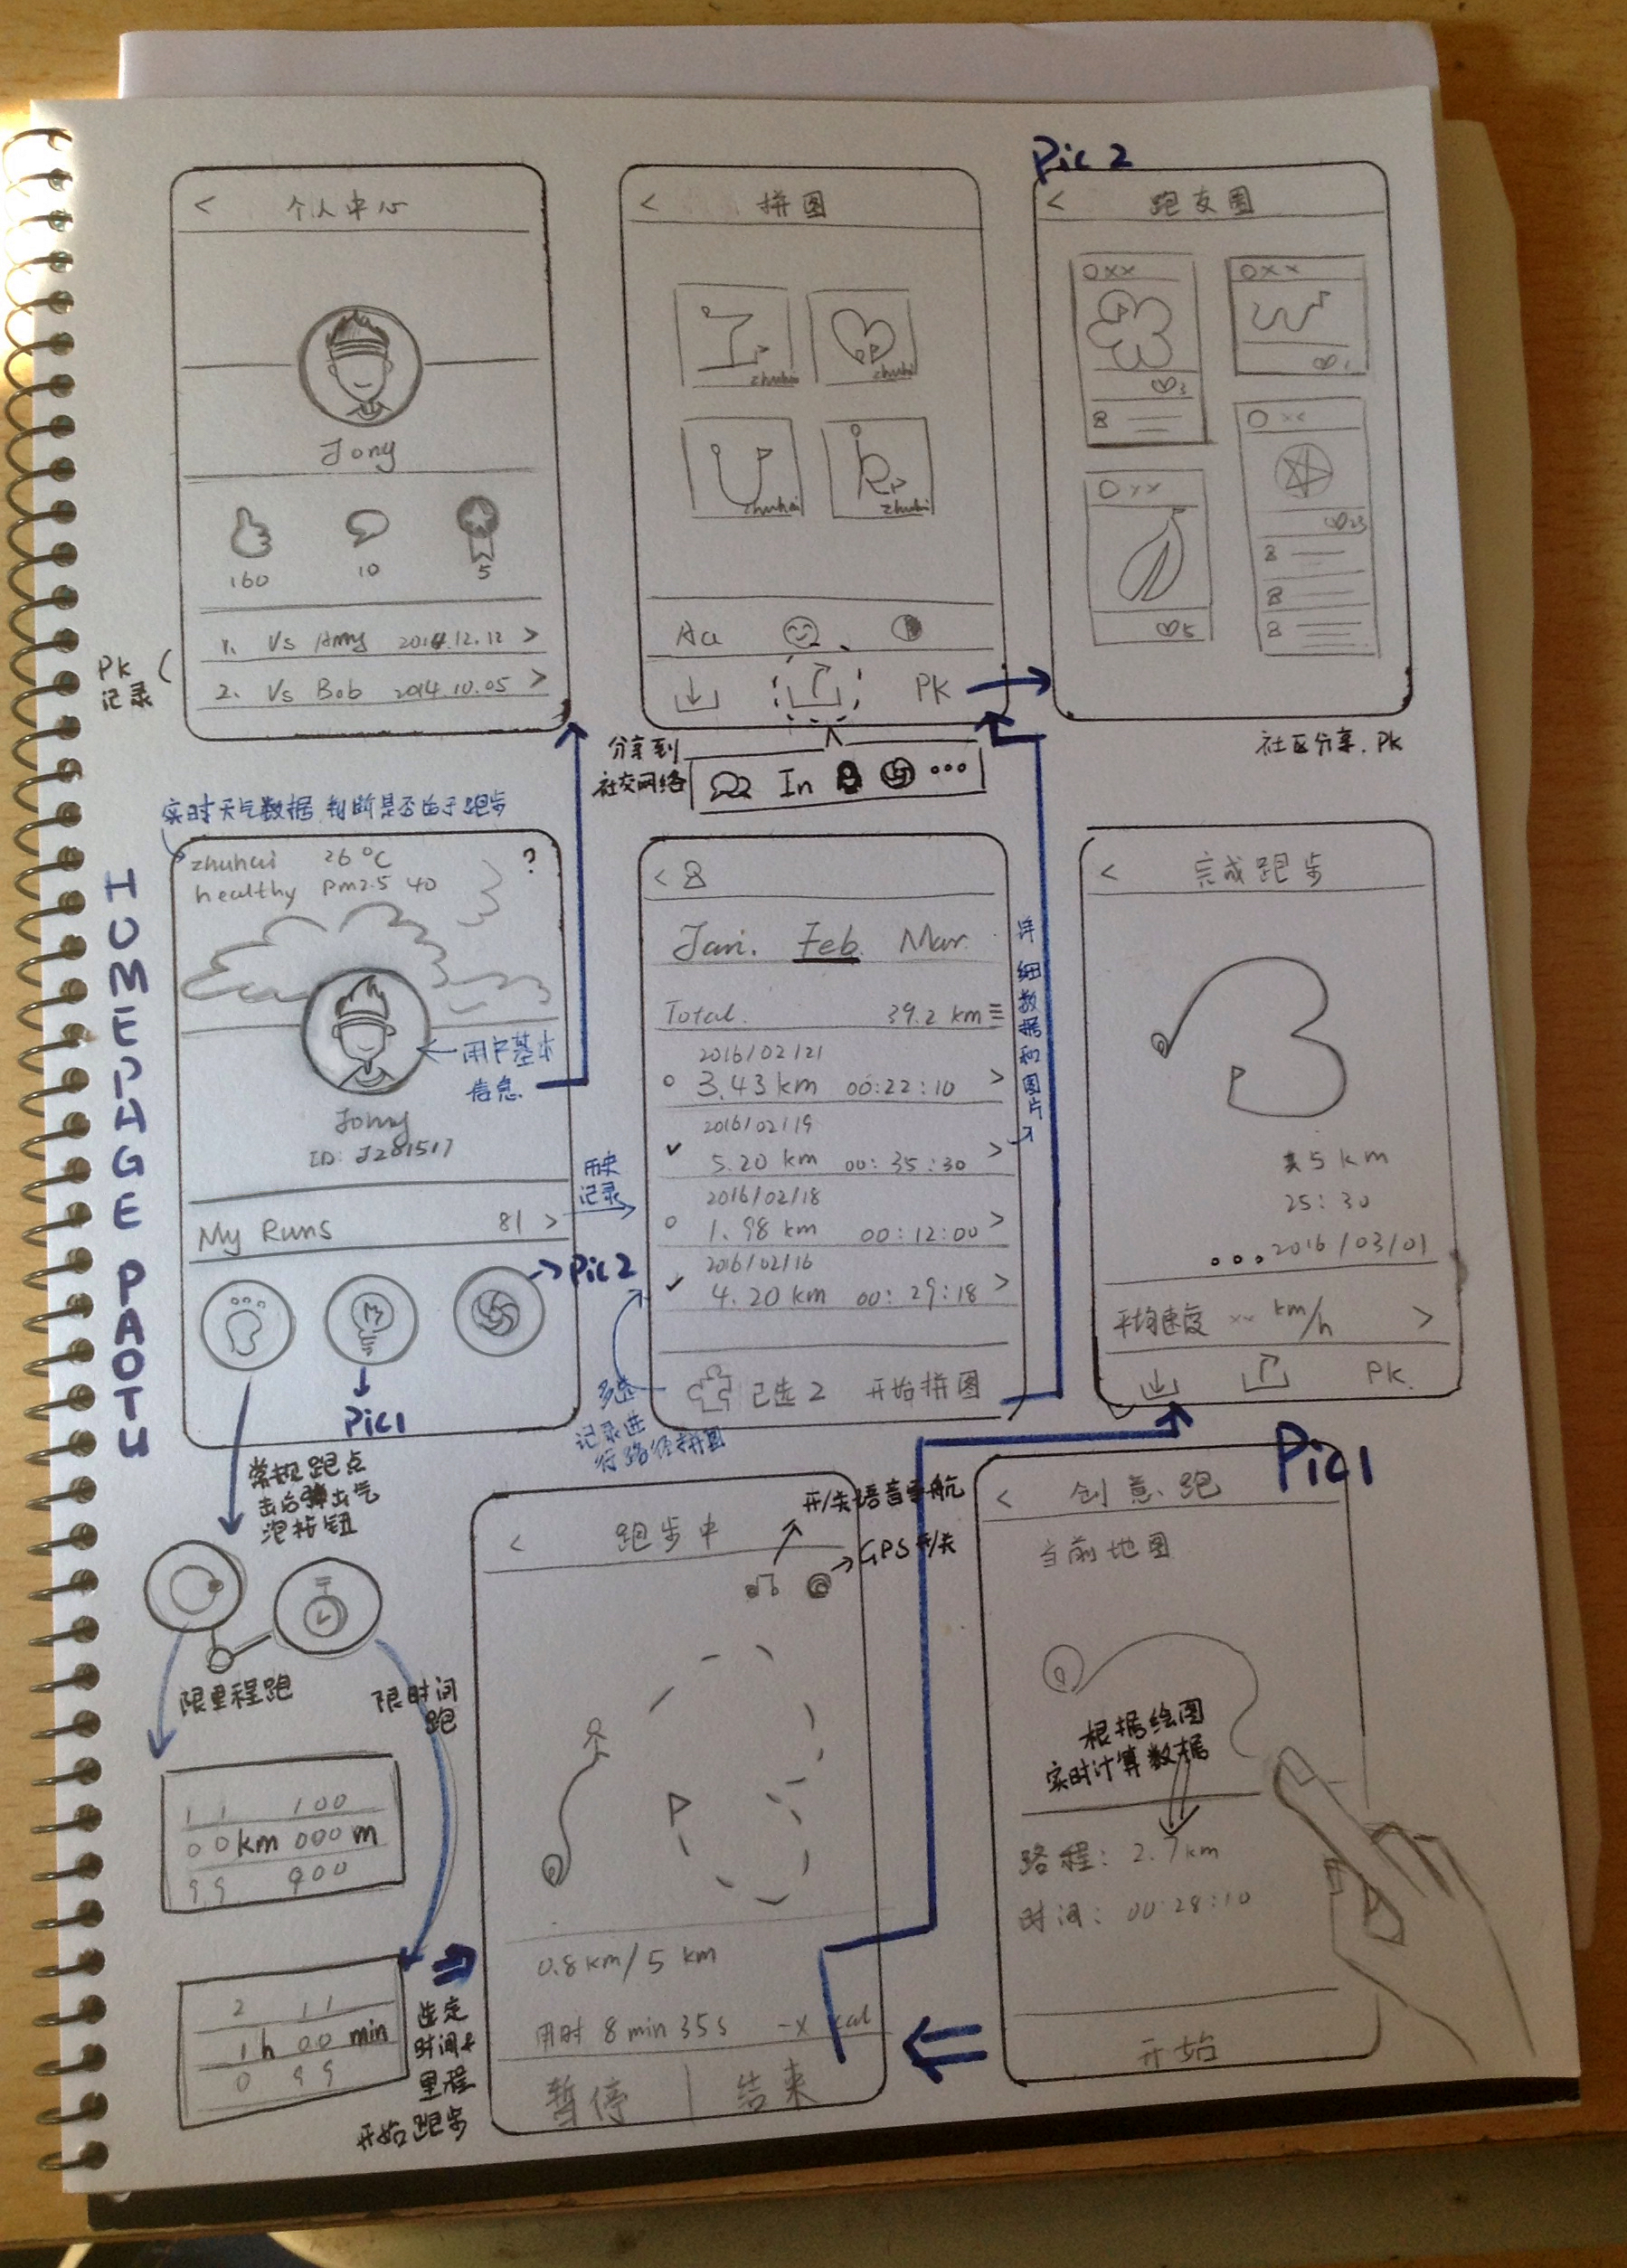 Pic 2
< 个人中心
Jony
160 10 5
1. Vs Amy 2014.12.12 >
2. Vs Bob 2014.10.05 >
PK
记录
< 拼图
zhuhai
zhuhai
zhuhai
zhuhai
Aa
PK
分享到
社交网络
In
< 跑友圈
OXX
3
OXX
1
OXX
5
OXX
23
社区分享、PK
HOMEPAGE PAOTU
实时天气数据 判断是否适于跑步
zhuhai 26°C ?
healthy pm2.5 40
用户基本
信息
Jony
ID: J281517
My Runs 81 >
Pic 2
Pic1
历史
记录
<
Jan. Feb. Mar.
Total. 39.2 km
2016/02/21
3.43 km 00:22:10 >
2016/02/19
5.20 km 00:35:30 >
2016/02/18
1.98 km 00:12:00 >
2016/02/16
4.20 km 00:29:18 >
已选2 开始拼图
多选
记录进
行路径拼图
详细数据和图片
< 完成跑步
共5 km
25:30
2016/03/01
平均速度 xx km/h >
PK
常规跑点
击后弹出气
泡按钮
限里程跑
限时间
跑
11 100
00 km 000 m
99 900
2 11
1h 00 min
0 99
选定
时间+
里程
开始跑步
< 跑步中
开/关语音导航
GPS开/关
0.8 km/5 km
用时 8 min 35s -x kal
暂停 | 结束
Pic1
< 创意跑
当前地图
根据绘图
实时计算数据
路程: 2.7km
时间: 00:28:10
开始